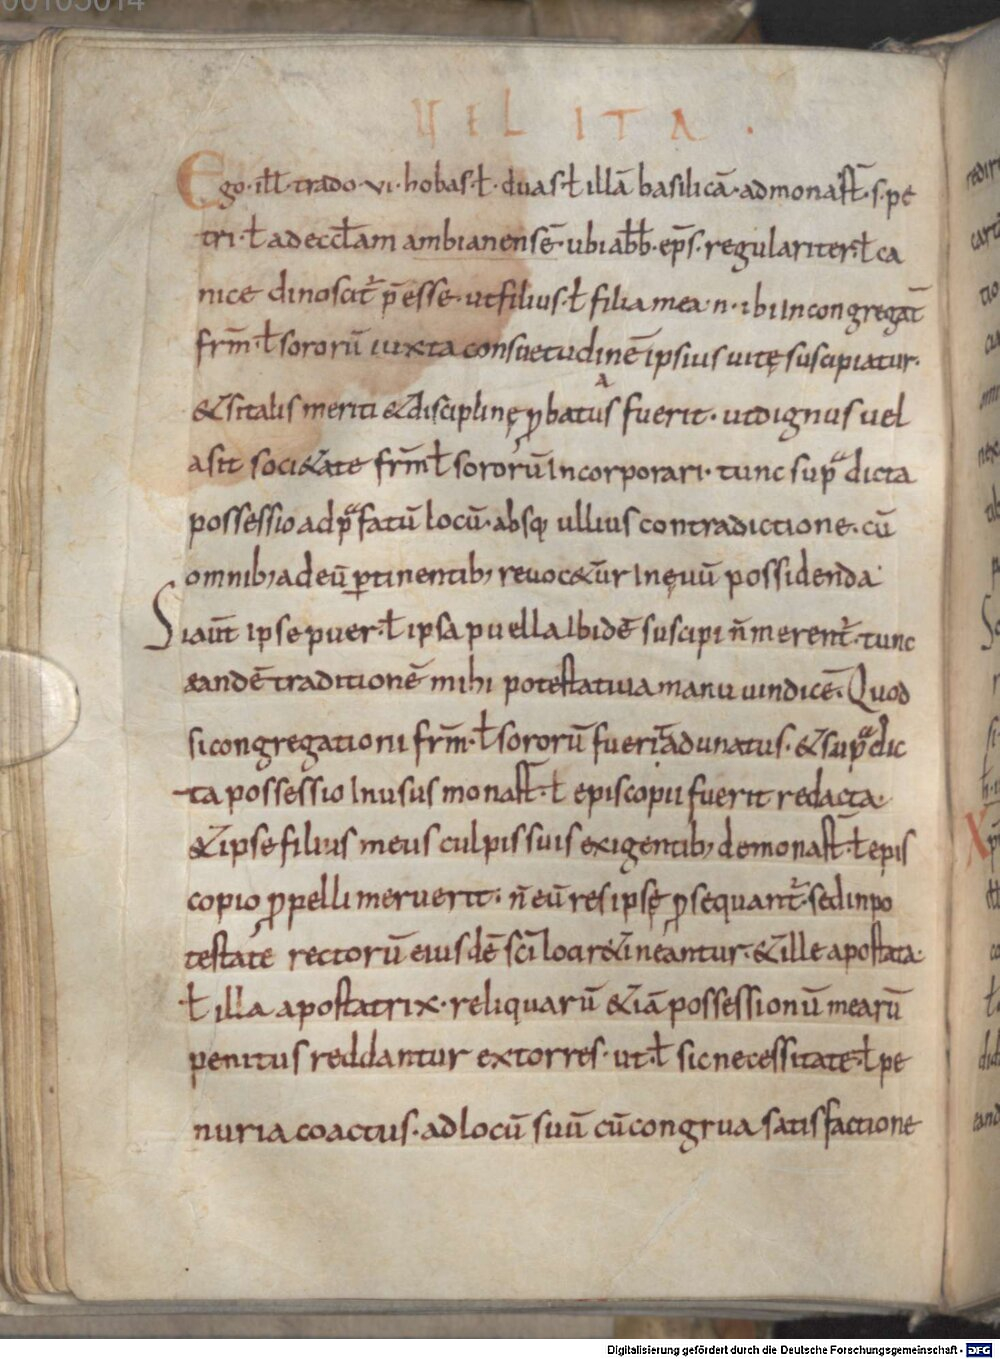 00105014
UEL ITA .
Ego· ill̄· trado· vi· hobas· ł· duas· ł illā basilicā· ad monast̄· s· pe
tri· ł ad eccl̄am ambianensē· ubi abb̄· ep̄s· regulariter· ł ca
nice dinoscit̄ p̄esse· ut filius· ł filia mea· n· ibi In congregat̄
fr̄m· ł sororū iuxta consuetudinē ipsius uitę suscipiatur·
& si talis meriti & disciplinę ꝓbatus fuerit· ut dignus uel
a
a sit soci&ate fr̄m ł sororū Incorporari· tunc sup̱ᵃdicta
possessio ad pᵃfatū locū· absq; ullius contradictione· cū
omnib; ad eū ꝑtinentib; reuoc&ur In ęuū possidenda·
Si aut̄ Ipse puer· ł ipsa puella Ibidē suscipi n̄ merent̄· tunc
eandē traditionē mihi potestatiua manu uindicē· Quod
si congregationi fr̄m· ł sororū fuerit adunatus· & supᵃdic
ta possessio In usus monast̄· ł episcopii fuerit redacta·
& ipse filius meus culpis suis exigentib; de monast̄· ł epis
copio ꝓpelli meruerit· n̄ eū res ipsę ꝓsequant̄· sed in po
testate rectorū eiusdē sc̄i loci r&ineantur· & ille apostata·
ł illa apostatrix· reliquarū &iā possessionū mearū
penitus reddantur extorres· ut· ł sic necessitate· ł pe
nuria coactus· ad locū suū cū congrua satisfactione
Digitalisierung gefördert durch die Deutsche Forschungsgemeinschaft - DFG